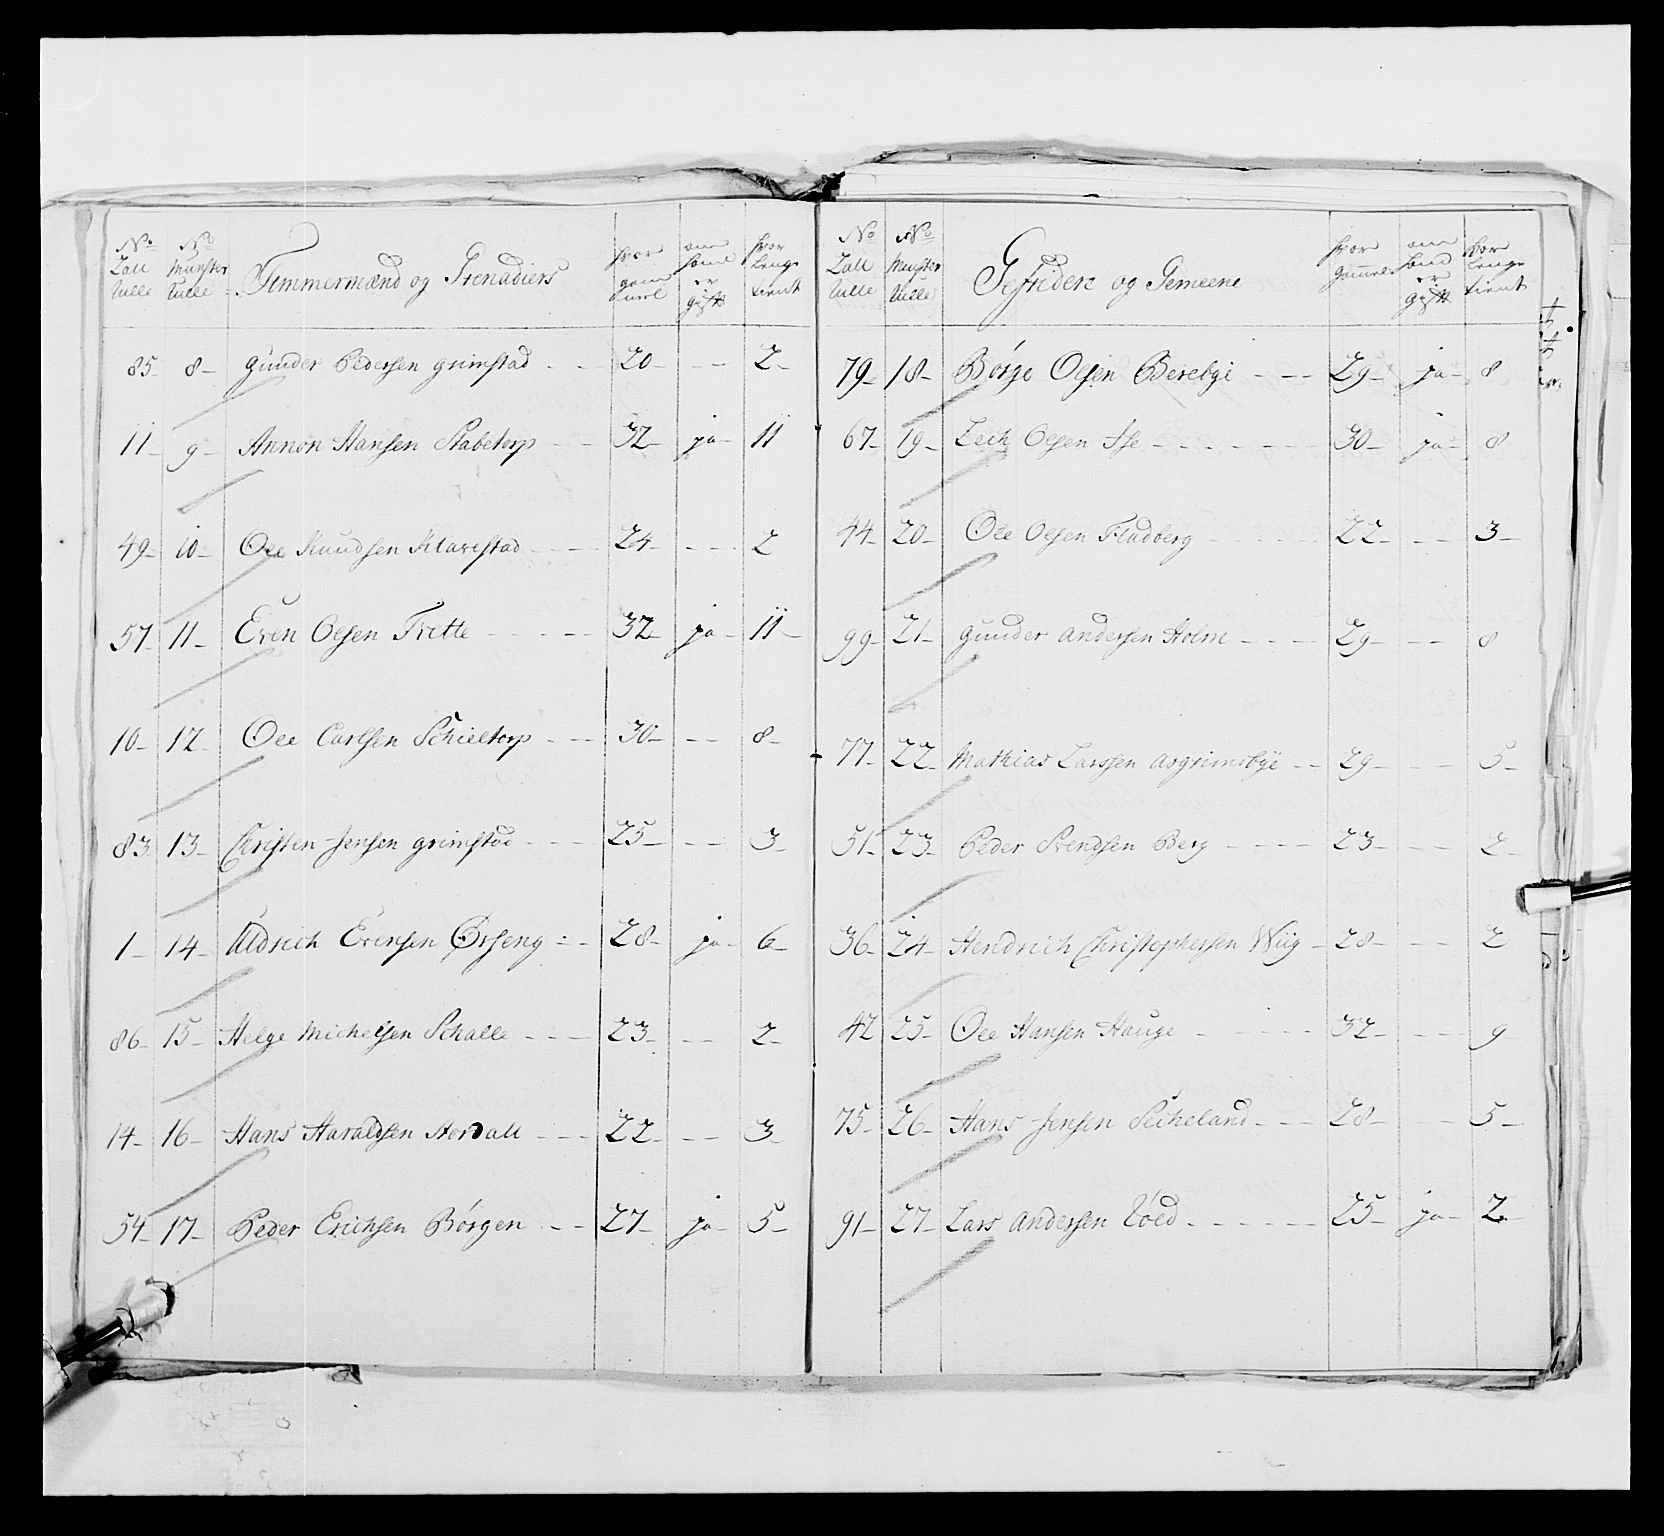 No Zall Rulle | No Munster Rulle | Timmermænd og Grenadiers | hvor gammel | om hand er gift | hvor lenge tient
85 - 8 - Gunder Pedersen Grimstad - - 20 - - - 2 -
11 - 9 - Annon Hansen Stabetorp - - 32 - ja - 11
49 - 10 - Ole Knudsen Klavestad - - - 24 - - - 2
57 - 11 - Even Olsen Tvette - - - - 32 - ja - 11 -
10 - 12 - Ole Carlsen Schieltorp - - 30 - - - 8 -
83 - 13 - Christen Jensen Grimstad - - - 25 - - - 3 -
1 - 14 - Uldrich Evensen Ørseng - - 28 - ja - 6 -
86 - 15 - Helge Michelsen Schalle - - - 23 - - - 2 -
14 - 16 - Hans Haraldsen Nordall - - - 22 - - - 3 -
54 - 17 - Peder Erichsen Börgen - - 27 - ja - 5 -
No Zall Rulle | No Munster Rulle | Gefridere og Gemeene | hvor gamel | om hand er gift | hvor lenge tient
79 - 18 - Börge Olsen Berebye - - - 29 - ja - 8
67 - 19 - Olsen - - - - - 30 - ja - 8
44 - 20 - Ole Olsen Fladberg - - - - 22 - - - 3 -
99 - 21 - Gunder Andersen Holm - - - 29 - - - 8
77 - 22 - Mathias Larssen Aagrimsbye - - 29 - - - 5 -
51 - 23 - Peder Svendsen Berg - - - - 23 - - - 2 -
36 - 24 - Hendrich Christophersen Wiig - 28 - - - 2
42 - 25 - Ole Hansen Hauge - - - - 32 - - - 9
75 - 26 - Hans Jensen - - - 28 - - - 5 -
91 - 27 - Lars Andersen - - - - - 25 - ja - 2 -